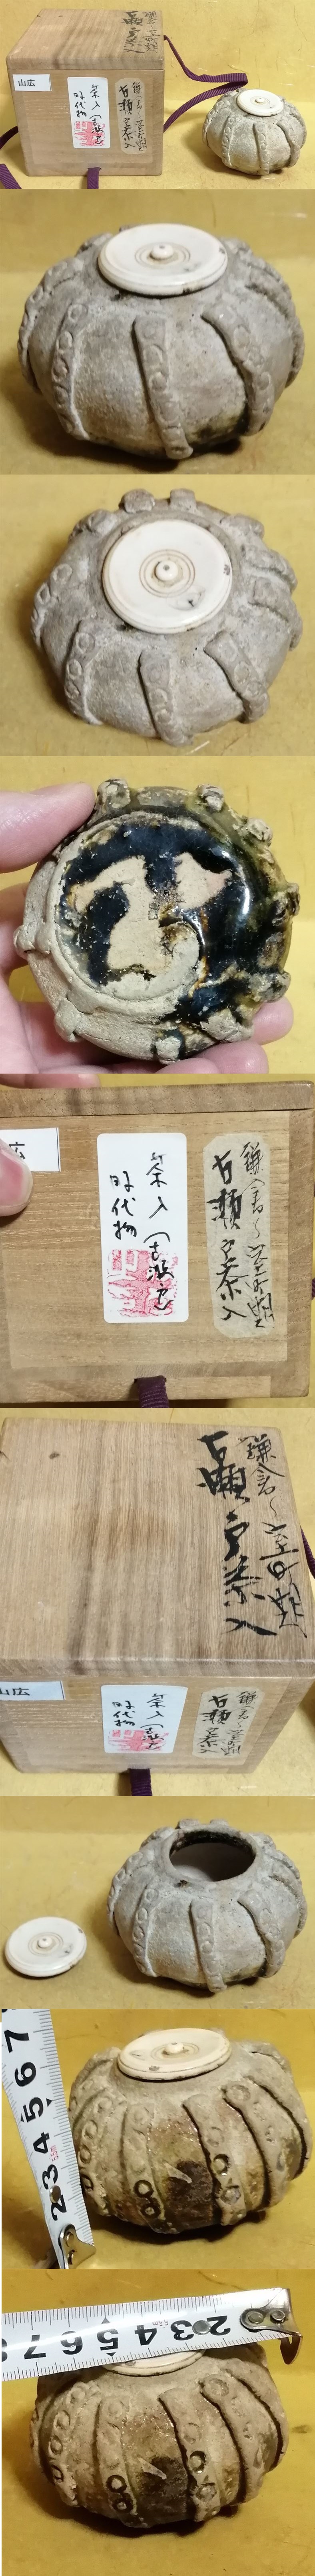 山広
鎌倉〜室町期
古瀬戸茶入
茶入(古瀬戸)
時代物
鎌倉〜室町期
古瀬戸茶入
茶入(古瀬戸)
時代物
広
鎌倉〜室町期
古瀬戸茶入
鎌倉〜室町期
古瀬戸茶入
茶入(古瀬戸)
時代物
山広
2 3 4 5 6 7
2 3 4 5 6 7